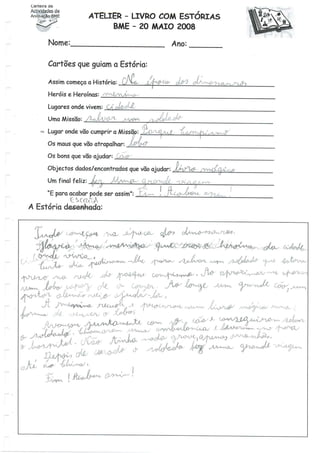 Carteira de
Actividades de
Animação BME
ATELIER - LIVRO COM ESTÓRIAS
BME - 20 MAIO 2008
Nome: Ano:
Cartões que guiam a Estória:
Assim começa a História: Na época dos dinossauros
Heróis e Heroínas: menina
Lugares onde vivem: Cidade
Uma Missão: Salvar um soldado
Lugar onde vão cumprir a Missão: Parque
Os maus que vão atrapalhar: Lobo
Os bons que vão ajudar: Cão
Objectos dados/encontrados que vão ajudar: Livro mágico
Um final feliz: fez uma grande viagem
"E para acabar pode ser assim": Fim! Acabou
ESCRITA
A Estória desenhada:
Tudo começou na época dos dinossauros.
Havia uma menina que era a heroína da cidade
onde vivia.
Certo dia pediram-lhe para salvar um soldado que estava
preso na rede do parque. Ao aproximar-se apareceu
um lobo capaz de a comer. Ao longe um grande cão, um
pastor alemão veio ajudá-la.
A menina procurou num livro mágico uma
forma de vencer o lobo.
juntamente com o cão e conseguiram salvar
o soldado. Chamaram uma ambulância e levaram-no para
o hospital. Não tinha nada grave, apenas
Depois de curado o soldado fez uma grande viagem
até à China.
Fim! Acabou assim!